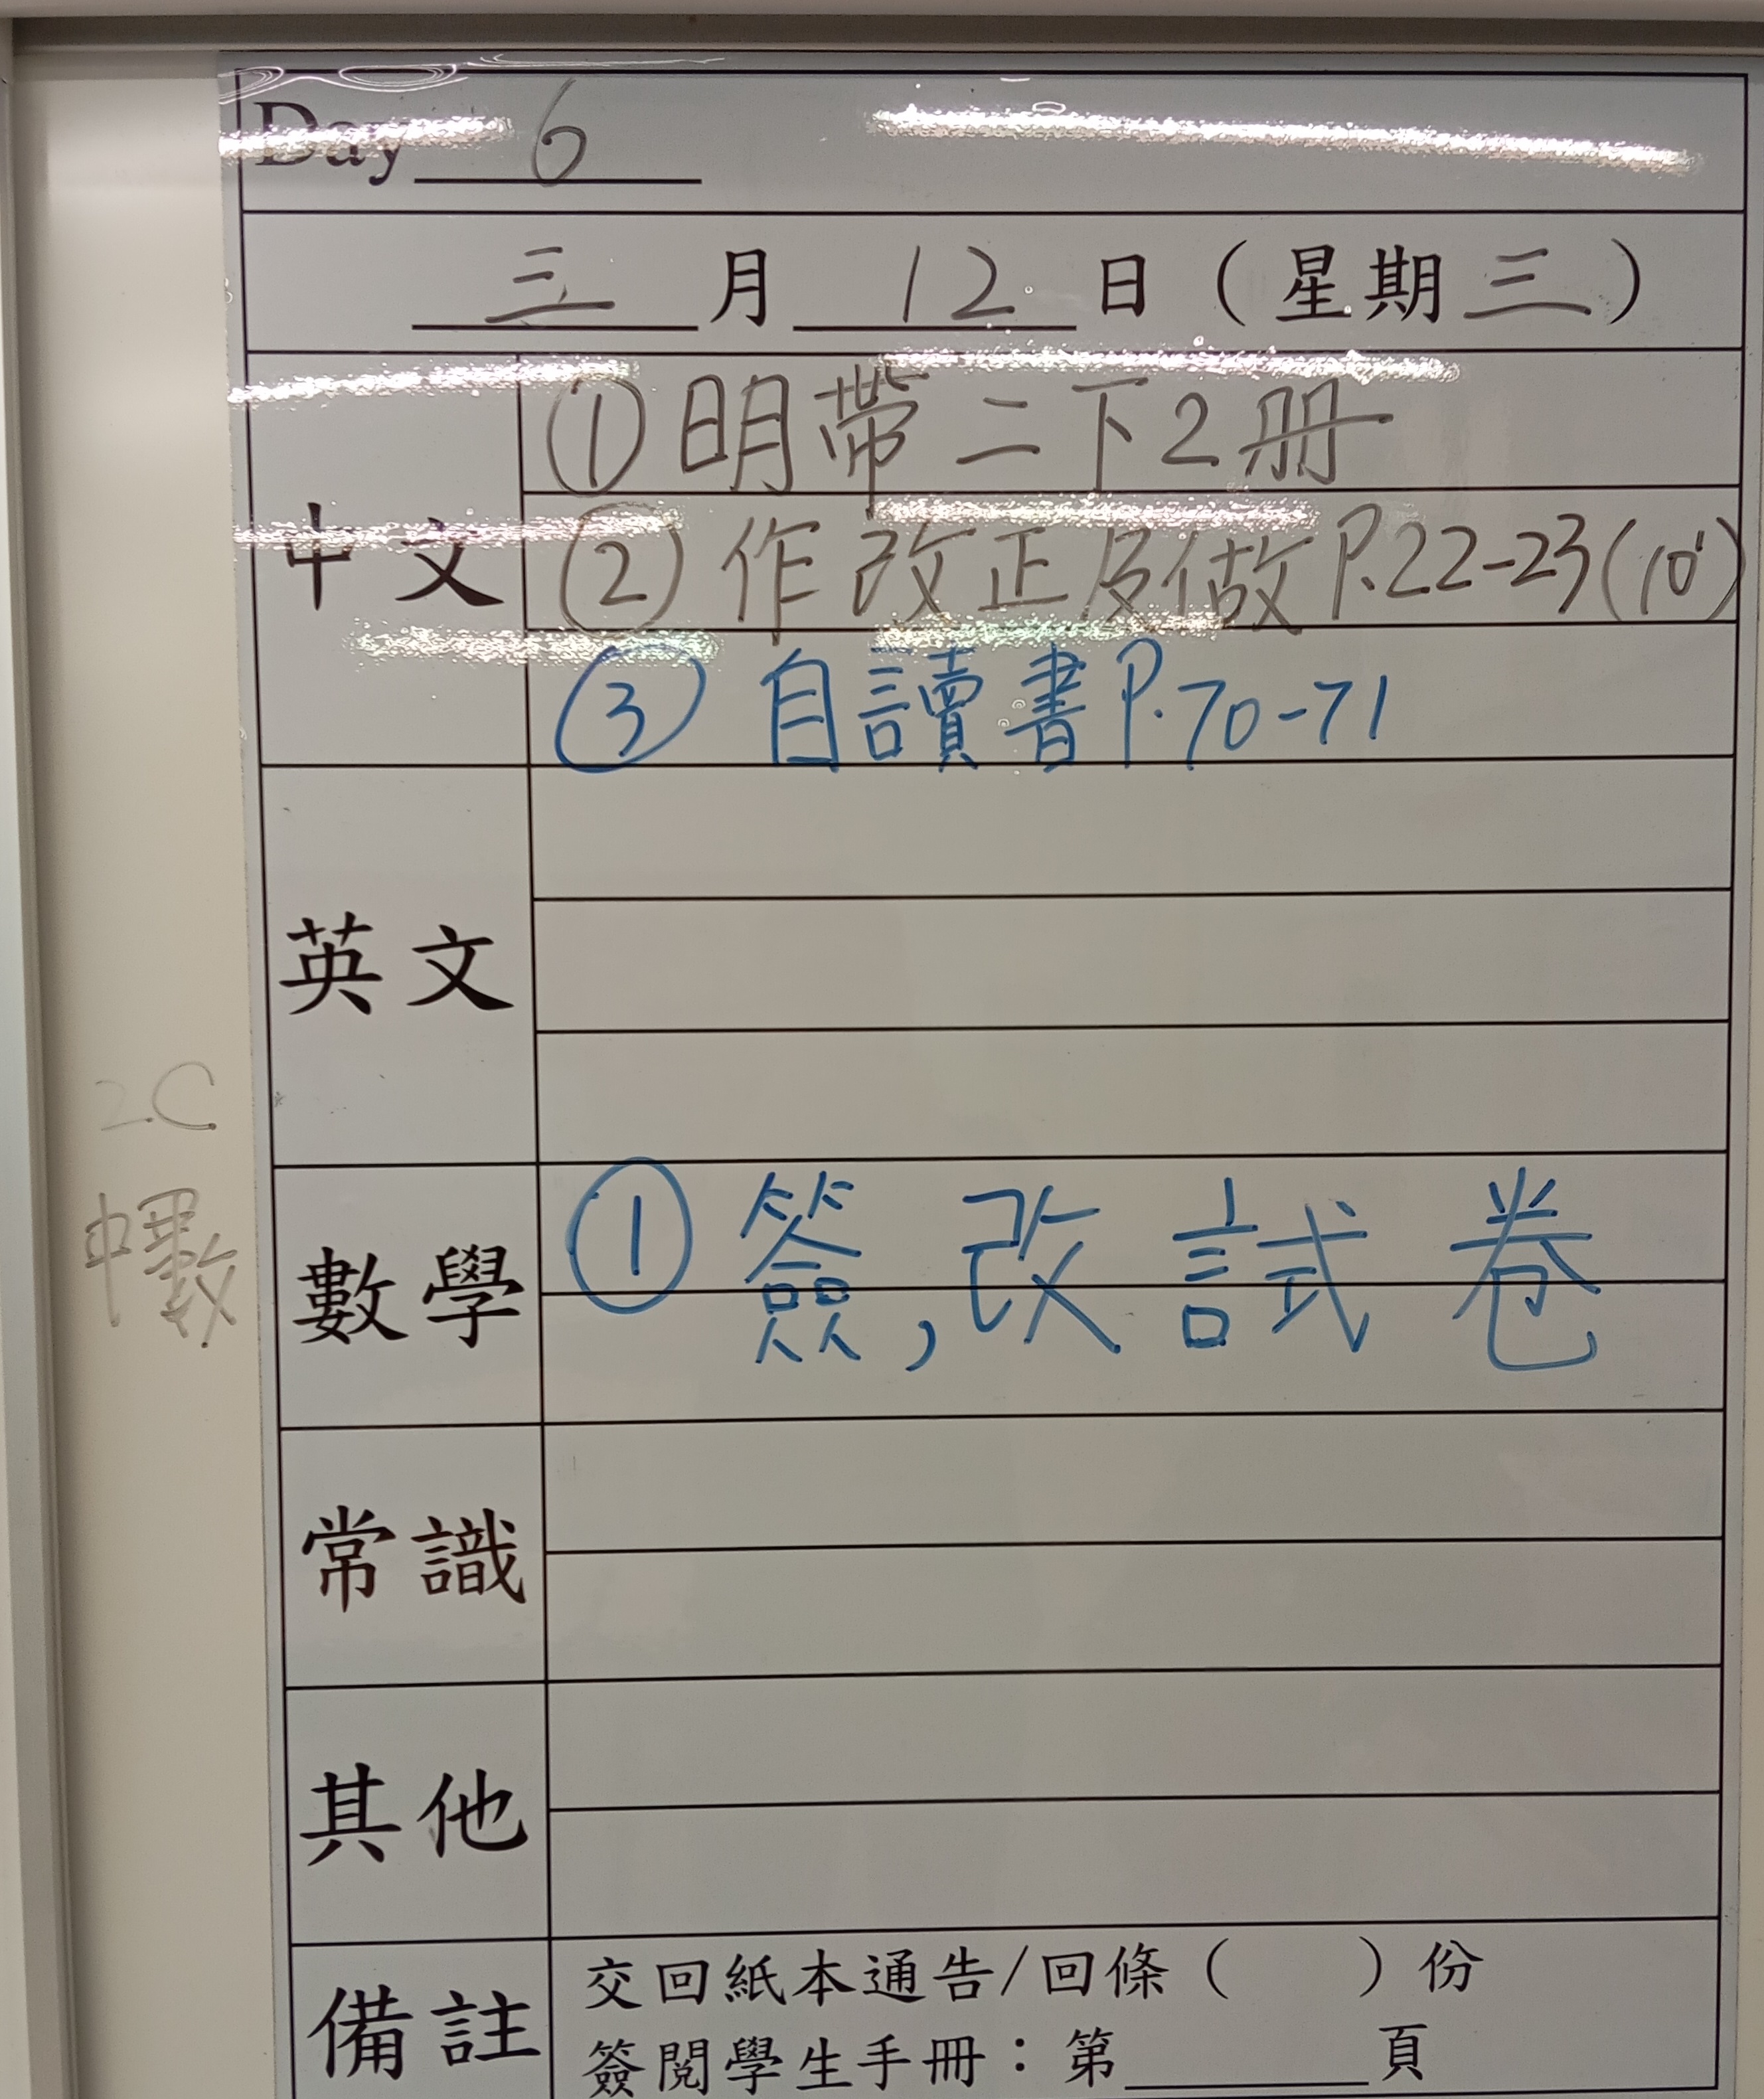 Day 6
三月12日(星期三)
中文
①明帶二下2冊
②作改正及做P.22-23(10')
③自讀書P.70-71
英文
數學
①簽,改試卷
常識
其他
備註
交回紙本通告/回條(   )份
簽閱學生手冊:第______頁
2C
中數